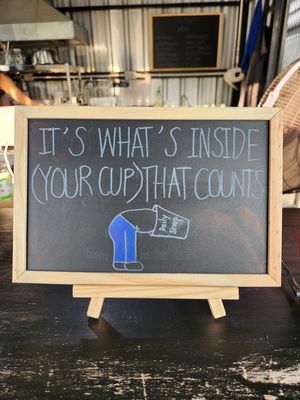 IT'S WHAT'S INSIDE
(YOUR CUP) THAT COUNTS
Daily
Snap